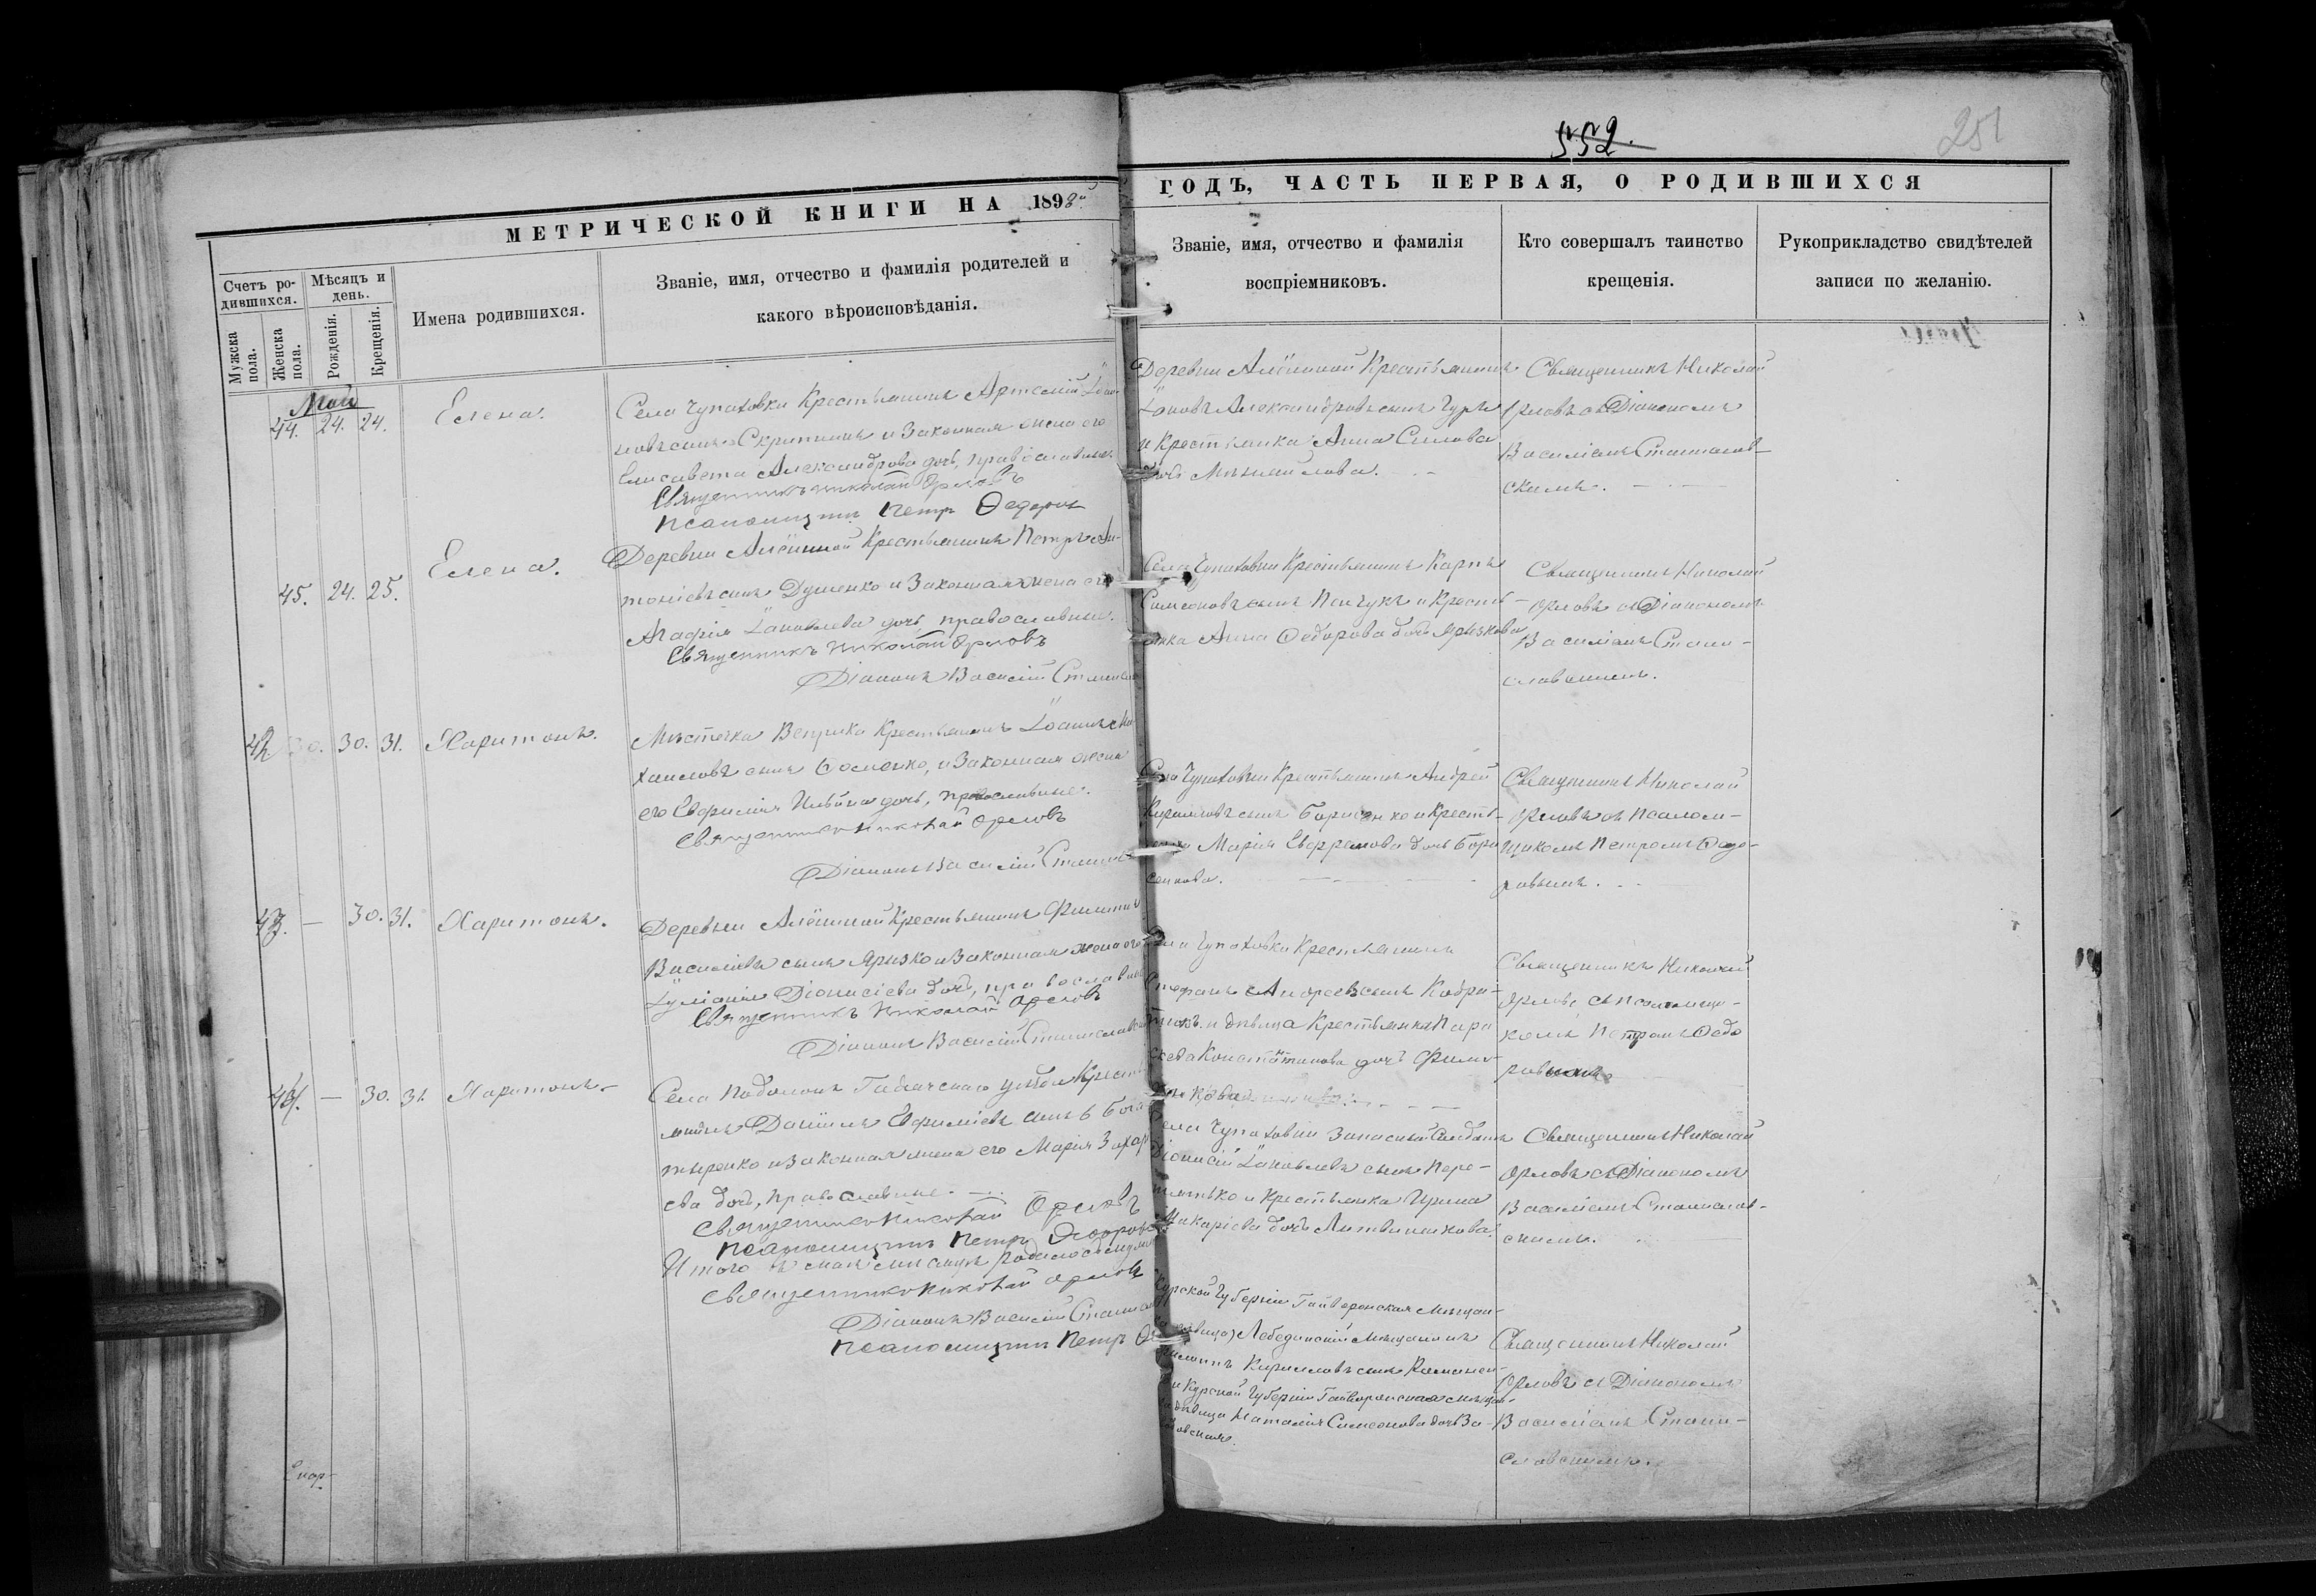 552.
251
МЕТРИЧЕСКОЙ КНИГИ НА 1898й
ГОДЪ, ЧАСТЬ ПЕРВАЯ, О РОДИВШИХСЯ
Счетъ ро-
дившихся.
Мужска
пола.
Женска
пола.
Мѣсяцъ и
день.
Рожденія.
Крещенія.
Имена родившихся.
Званіе, имя, отчество и фамилія родителей и
какого вѣроисповѣданія.
Званіе, имя, отчество и фамилія
воспріемниковъ.
Кто совершалъ таинство
крещенія.
Рукоприкладство свидѣтелей
записи по желанію.
Май
44. 24. 24.
Елена.
Села Чупаховки Крестьянинъ Артемій
сынъ Скрипникъ и Законная жена его
Елисавета Александрова дочь, православные.
Священникъ Николай Орловъ
Псаломщикъ Петръ Федоровъ
Деревни Алёшиной Крестьянинъ
Іаковъ Александровъ сынъ Гура
и Крестьянка Анна Силова
дочь Михайлова.
Священникъ Николай
Орловъ съ Діакономъ
Василіемъ Станислав-
скимъ.
45. 24. 25.
Елена.
Деревни Алёшиной Крестьянинъ Петръ Ан-
тоніевъ сынъ Душенко и Законная жена его
Агафія Іаковлева дочь, православные.
Священникъ Николай Орловъ
Діаконъ Василій
Села Чупаховки Крестьянинъ Карпъ
Симеоновъ сынъ Пинчукъ и Кресть-
янка Анна Федорова дочь Яризкова
Священникъ Николай
Орловъ съ Діакономъ
Василіемъ Стани-
славскимъ.
42 30. 31.
Харитонъ.
Мѣстечка Веприка Крестьянинъ Іоаннъ Ми-
хаиловъ сынъ и Законная жена
его Евфимія дочь, православные.
Священникъ Николай Орловъ
Діаконъ Василій
Села Чупаховки Крестьянинъ Андрей
Кирилловъ сынъ Борисенко и Кресть-
янка Марія Евфремова дочь Бори
сенкова.
Священникъ Николай
Орловъ съ Псалом-
щикомъ Петромъ Федо-
ровымъ.
43. — 30. 31.
Харитонъ.
Деревни Алёшиной Крестьянинъ Филиппъ
Василіевъ сынъ Яризко и Законная жена его
Іуліанія Діонисіева дочь, православные
Священникъ Николай Орловъ
Діаконъ Василій Станиславскій
Села Чупаховки Крестьянинъ
Стефанъ Андреевъ сынъ
и дѣвица Крестьянка Пара
скева Константинова дочь
Священникъ Николай
Орловъ съ Псаломщи-
комъ Петромъ Федо
ровымъ
44. — 30. 31.
Харитонъ.
Села Подолокъ Гадячскаго уѣзда Кресть
янинъ Даніилъ Евфиміевъ сынъ Бога
тыренко и Законная жена его Марія Захарі
ева дочь, православные.
Священникъ Николай Орловъ
Псаломщикъ Петръ Федоровъ
Села Чупаховки Запасный Солдатъ
Діонисій Іаковлевъ сынъ Пере-
пятько и Крестьянка Ирина
Макаріева дочь Литвиненкова.
Священникъ Николай
Орловъ съ Діакономъ
Василіемъ Станислав-
скимъ.
Итого въ маѣ мѣсяцѣ родилось
Священникъ Николай Орловъ
Діаконъ Василій
Псаломщикъ Петръ
Курской Губерніи Гайворонская Мѣщан-
Лебединскій Мѣщанинъ
Кирилловъ сынъ Романен-
и Курской Губерніи Гайворонская мѣщан-
дѣвица Наталія Симеонова дочь За-
Священникъ Николай
Орловъ съ Діакономъ
Василіемъ Стани-
славскимъ.